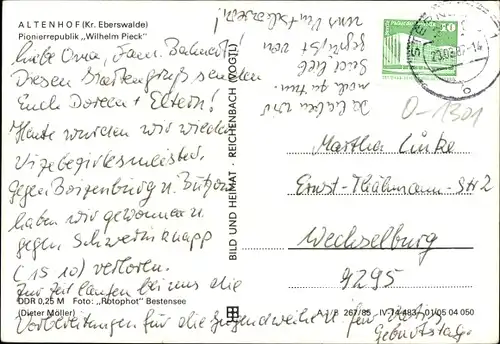 ALTENHOF (Kr. Eberswalde)
Pionierrepublik „Wilhelm Pieck"
Liebe Oma, Fam. Bahnert!
Diesen Kartengruß senden
Euch Doreen + Eltern!
Heute wurden wir wieder
Vizebezirksmeister,
gegen Boizenburg u. Bützow
haben wir gewonnen u.
gegen Schwerin knapp
(15 10) verloren.
Zur Zeit laufen bei uns die
Vorbereitungen für die Jugendweihe u. für
Geburtstag.
Da haben wir
noch zu tun.
Seid lieb
gegrüßt von
uns
DDR 0,25 M Foto: „Rotophot" Bestensee
(Dieter Möller)
BILD UND HEIMAT · REICHENBACH (VOGTL)
A 1/B 267/85 IV-14-483 01/05 04 050
10
O-1301
Martha Linke
Ernst-Thälmann-Str 2
Wechselburg
9295